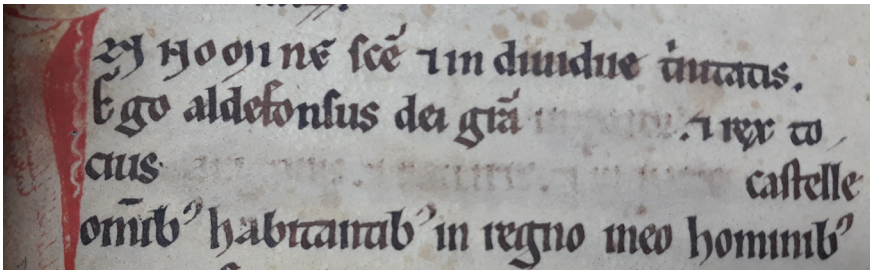 IN NOMINE sc̄e ⁊ indiuidue t'nitatis.
Ego aldefonsus dei gr̄a .⁊ rex to
cius castelle
om̄ib⁹ habitantib⁹ in regno meo hominib⁹